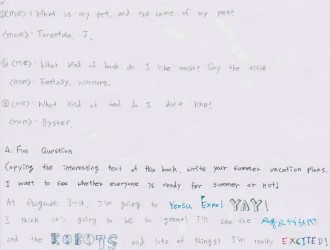 ① (me): What is my pet, and the name of my pet?
(mom): Tarantula, J.
② (me): What kind of book do I like most? Say the
(mom): Fantasy, Warriors.
③ (me): What kind of food do I don't like?
(mom): Oyster.
A. Fun Question
Copying the interesting text of this book, write your summer vacation plans.
I want to see whether everyone is ready for summer or not!
At August 3rd, I'm going to Yeosu Expo! YAY!
I think it's going to be so great! I'll see the
and the ROBOTS and lots of things! I'm really EXCITED!